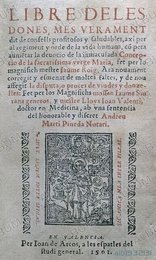 LIBRE DE LES
DONES, MES VERAMENT
dit de consells profitosos y saludables, axi per
al regiment y orde de la vida humana, co pera
aumentar la deuocio de la inmaculada Concep-
cio de la sacratissima verge Maria, fet per lo
magnifich mestre Jaume Roig. Ara nouament
corregit y esmenat de moltes faltes, y de nou
afegit la disputa o proces de viudes y donze-
lles: fet per los Magnifichs mossen Jaume
generos, y mestre Lloys Joan Valenti,
doctor en Medicina, ab vna sentencia
del honorable y discret Andreu
Marti Pineda Notari.
EN VALENCIA.
Per Joan de Arcos, a les espatles del
studi general. 1561.